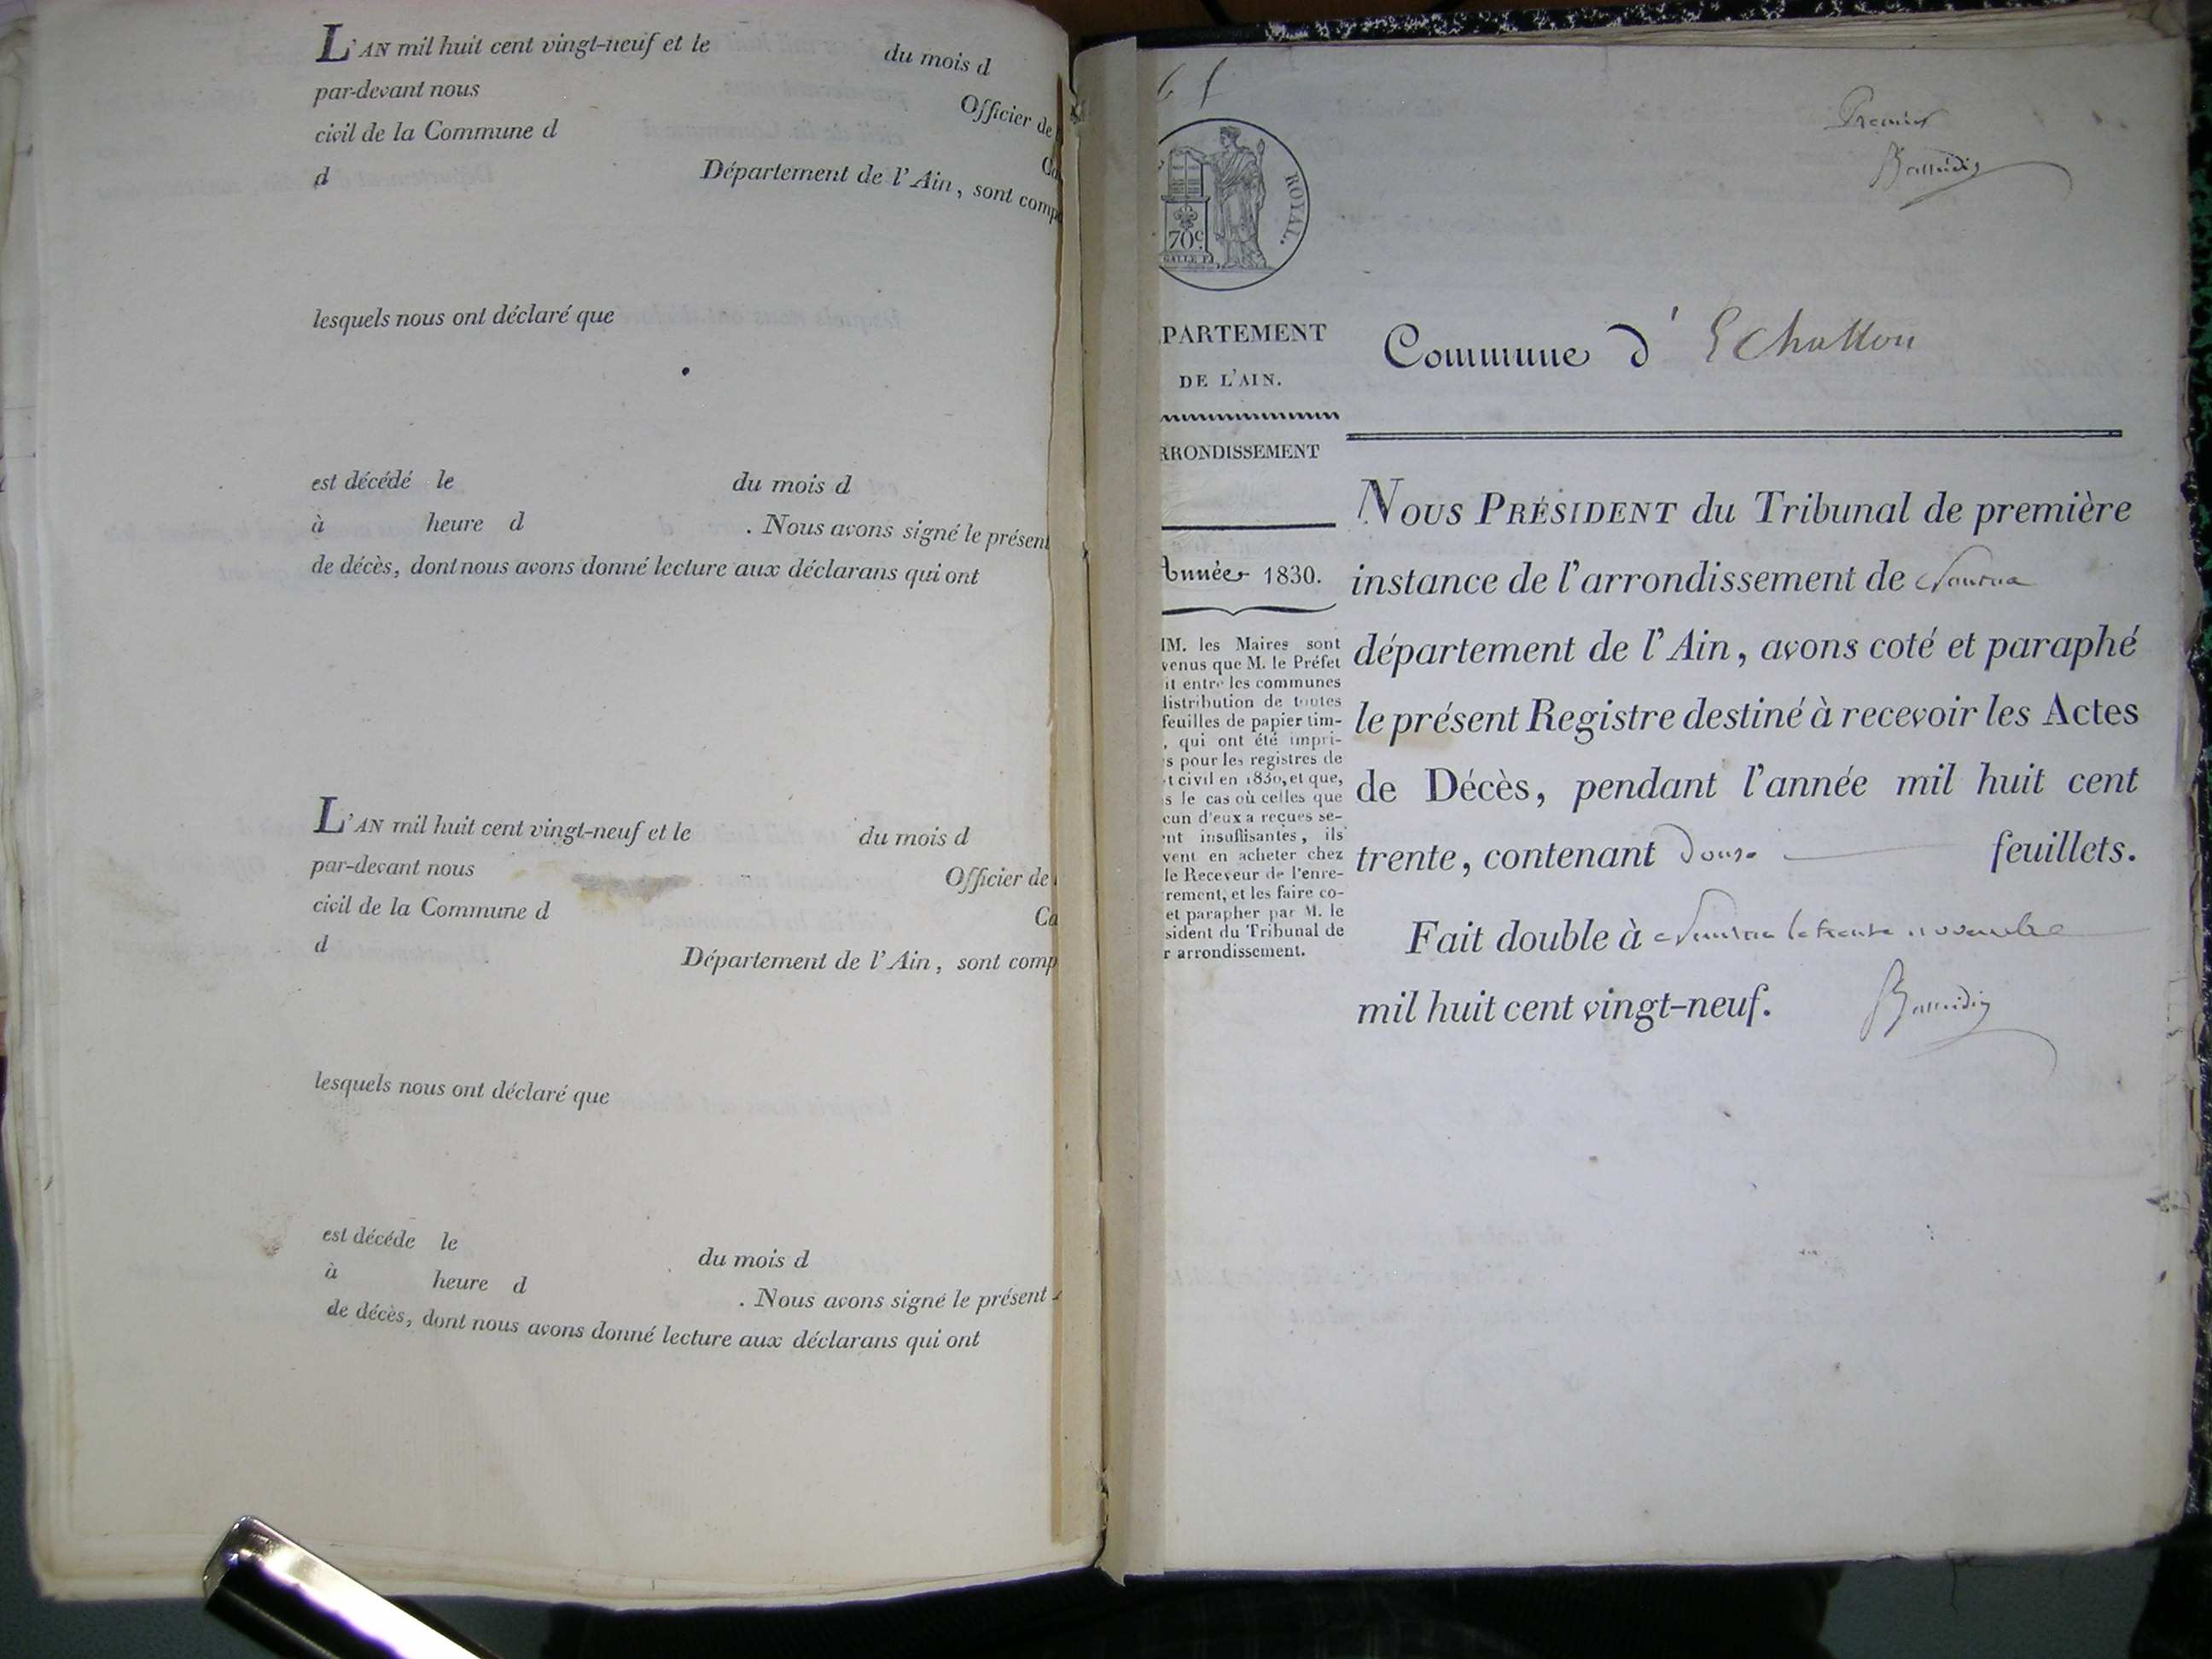 L'AN mil huit cent vingt-neuf et le du mois d
par-devant nous Officier de
civil de la Commune d
d Département de l'Ain, sont comp
lesquels nous ont déclaré que
est décédé le du mois d
à heure d . Nous avons signé le présent
de décès, dont nous avons donné lecture aux déclarans qui ont
L'AN mil huit cent vingt-neuf et le du mois d
par-devant nous Officier de
civil de la Commune d Ca
d Département de l'Ain, sont comp
lesquels nous ont déclaré que
est décéde le du mois d
à heure d . Nous avons signé le présent
de décès, dont nous avons donné lecture aux déclarans qui ont
Premier
ROYAL.
70c
GALLE F.
PARTEMENT
DE L'AIN.
RRONDISSEMENT
Année 1830.
M. les Maires sont
venus que M. le Préfet
it entre les communes
distribution de toutes
feuilles de papier tim-
, qui ont été impri-
s pour les registres de
t civil en 1830, et que,
s le cas où celles que
cun d'eux a reçues se-
nt insuffisantes, ils
vent en acheter chez
le Receveur de l'enre-
rement, et les faire co-
et parapher par M. le
sident du Tribunal de
r arrondissement.
Commune d' Echallon
NOUS PRÉSIDENT du Tribunal de première
instance de l'arrondissement de Nantua
département de l'Ain, avons coté et paraphé
le présent Registre destiné à recevoir les Actes
de Décès, pendant l'année mil huit cent
trente, contenant douze feuillets.
Fait double à Nantua le trente novembre
mil huit cent vingt-neuf.